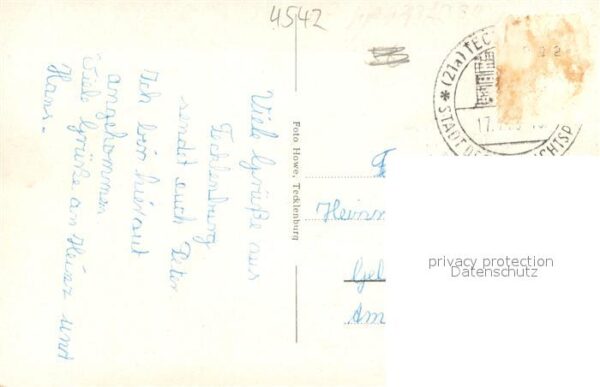 4542
Viele Grüße aus
Tecklenburg
sendet euch Peter
Ich bin hier gut
angekommen.
Viele Grüße an Heinz und
Hans.
Foto Howe, Tecklenburg
* (21a) TEC
17.
STADT DE
CHTSP
Heinr
Gel
Am
privacy protection
Datenschutz